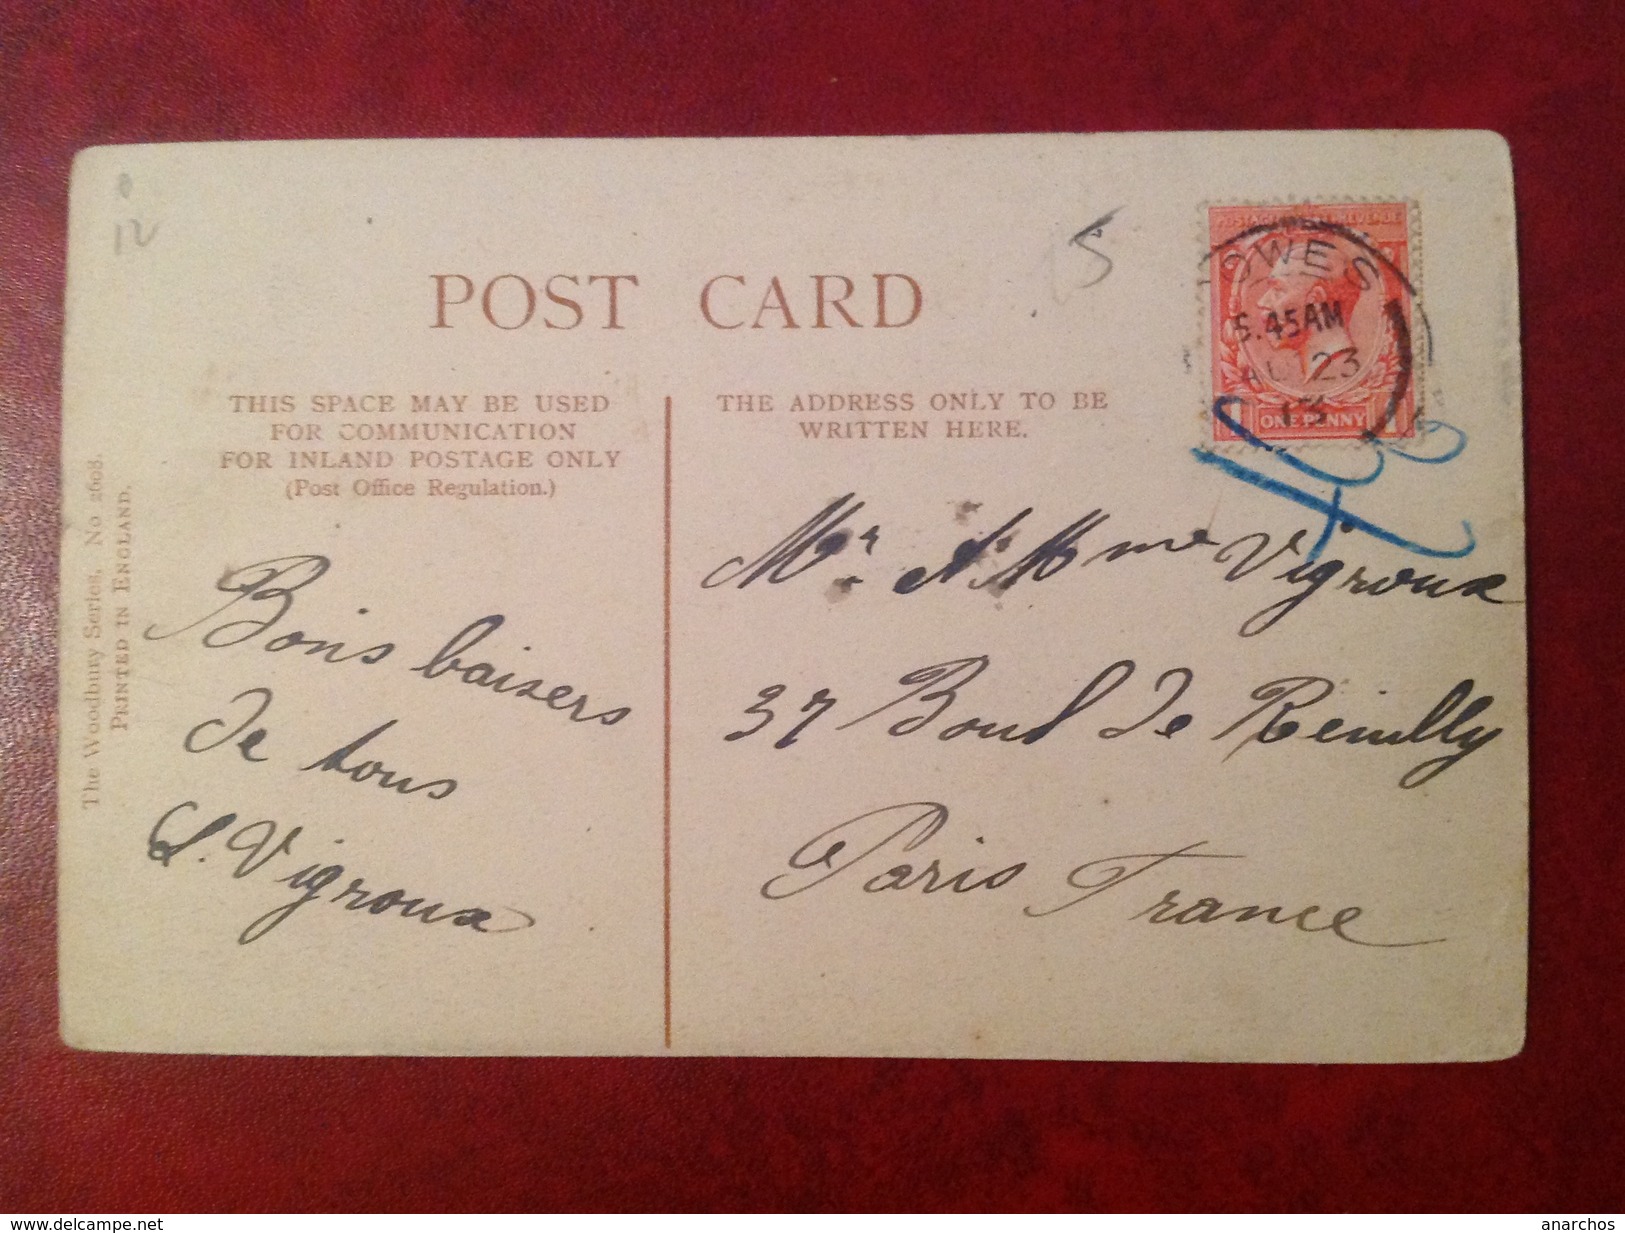 12
S
POST CARD
THIS SPACE MAY BE USED
FOR COMMUNICATION
FOR INLAND POSTAGE ONLY
(Post Office Regulation.)
THE ADDRESS ONLY TO BE
WRITTEN HERE.
POSTAGE REVENUE
OWES
5.45AM
AU 23
13
1 ONE PENNY 1
The Woodbury Series, No 2608.
PRINTED IN ENGLAND.
Bons baisers
de tous
L. Vigroux
Mr. et Mme Vigroux
37 Boul de Reuilly
Paris France
www.delcampe.net
anarchos